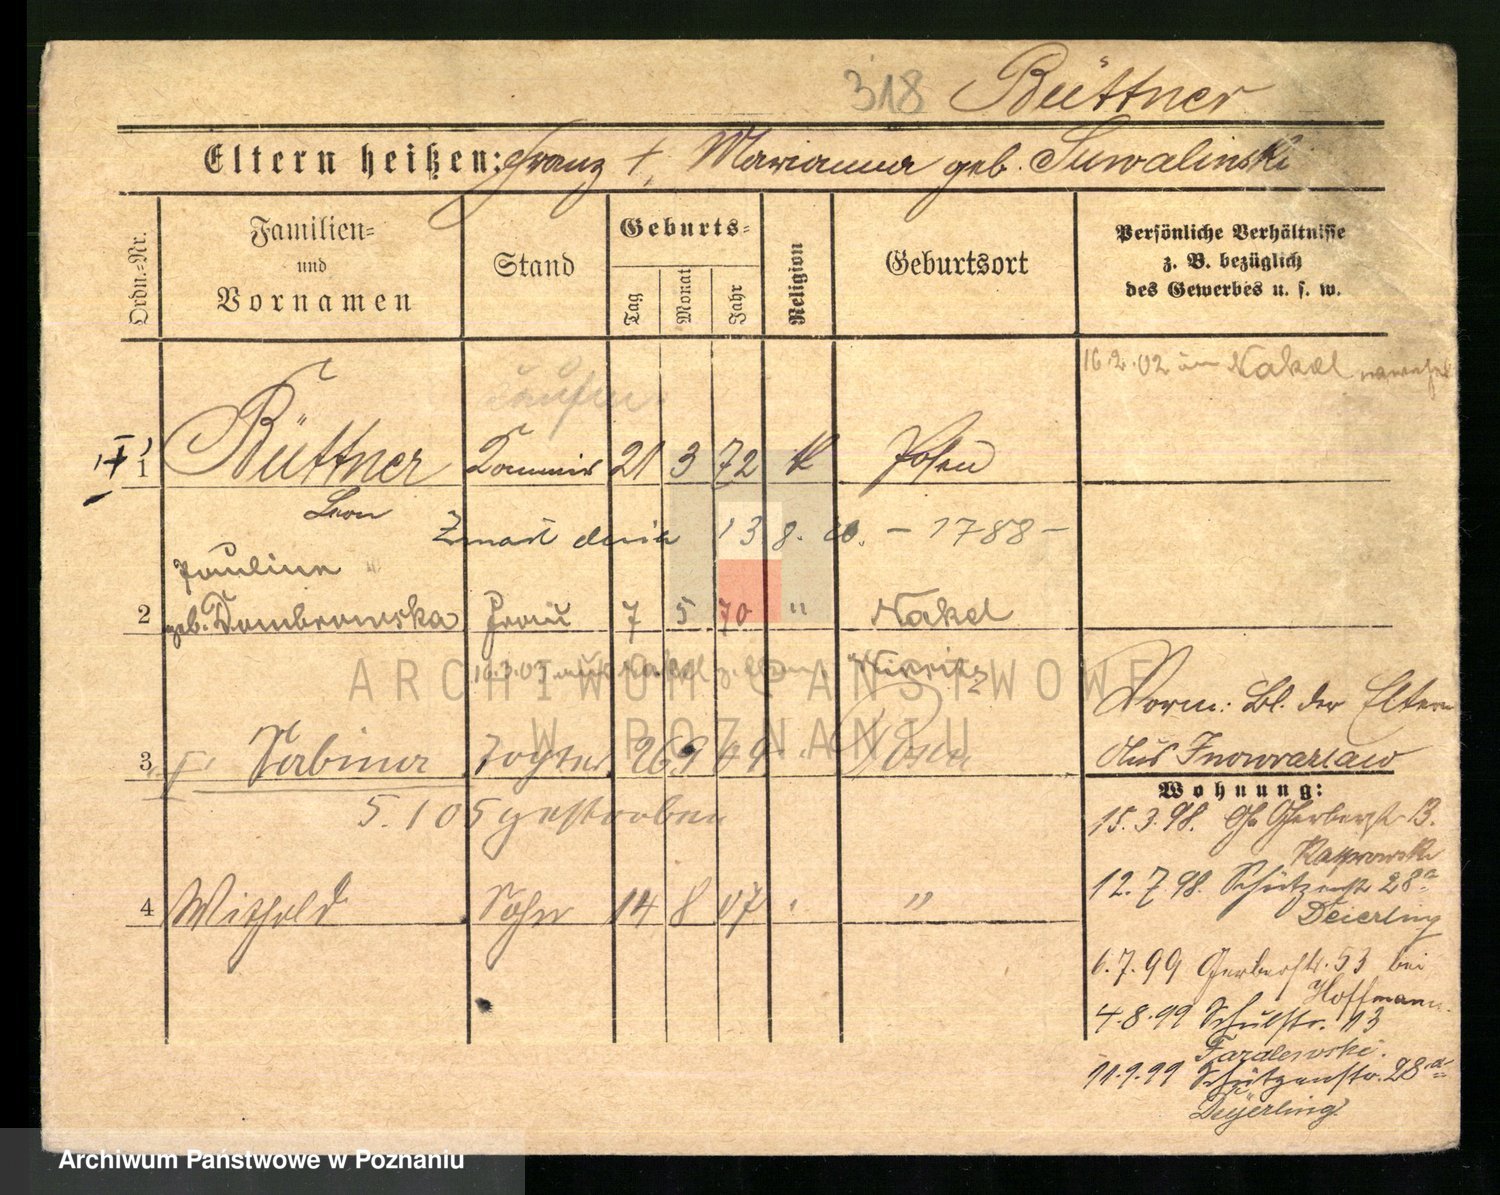 318 Büttner
Eltern heißen: Franz †, Marianna geb. Suwalinski
Ordn.-Nr.
Familien- und Vornamen
Stand
Geburts-
Tag
Monat
Jahr
Religion
Geburtsort
Persönliche Verhältnisse
z. B. bezüglich
des Gewerbes u. s. w.
16.2.02 in Nakel
1 Büttner 21 3 72 k Posen
Leon
13 8. 20. - 1788 -
Pauline
2 geb. Dombrowska Frau 7 5 70 " Nakel
16.3.03 aus Nakel
Vorm: Bl. der Eltern
3 Sabina Tochter 26 9 Posen
aus Inowrazlaw
Wohnung:
5.1 05 gestorben
15.3.98. Gr Gerberst 13.
Kasprowski
12.7.98. Schützenstr 28a
Deierling
4 Withold Sohn 14 8 07 "
6.7.99 Gerberstr. 53 bei
Hoffmann
4.8.99 Schulstr. 13
11.9.99 Schützenstr. 28a
Deyerling
ARCHIWUM PAŃSTWOWE
W POZNANIU
Archiwum Państwowe w Poznaniu